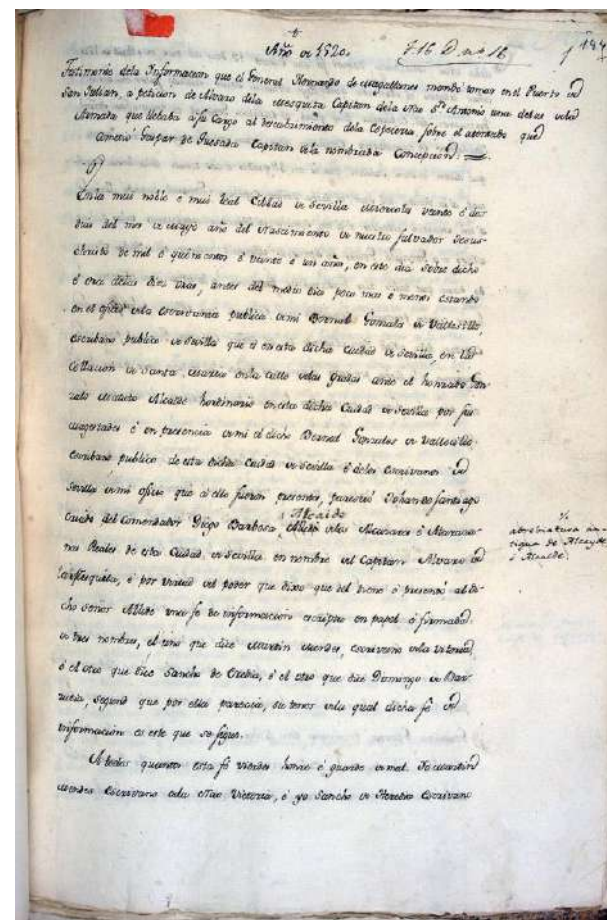 Año de 1520.
7.16 D nº 16
Testimonio dela Informacion que el General Hernando de Magallanes mandó tomar en el Puerto de
San Julian, a peticion de Alvaro dela Mesquita Capitan dela Nao Sn. Antonio una delas dela
Armada que llebaba a su Cargo al descubrimiento dela Especeria sobre el atentado que
cometió Gaspar de Quesada Capitan dela nombrada Concepcion.
Enla mui noble é mui leal Cibdad de Sevilla Miercoles veinte é dos
dias del mes de Mayo año del Nascimiento de nuestro Salvador Jesus-
christo de mil é quinientos é veinte é un años, en este dia sobre dicho
á ora delas dies oras, antes del medio dia poco mas o menos estando
en el oficio dela escrivania publica de mi Bernal Gonzales de Vallesillo,
escribano publico de Sevilla que es en esta dicha Cuidad de Sevilla, en la
Collacion de Santa Maria enla calle delas Gradas ante el honrado Gon-
zalo Alcalde hordinario en esta dicha Ciudad de Sevilla por sus
Magestades é en presencia de mi el dicho Bernal Gonzales de Vallecillo
escribano publico de esta dicha Ciudad de Sevilla é delos Escrivanos de
Sevilla de mi oficio que á ello fueron presentes, paresció Johan de Santiago
criado del Comendador Diego Barbosa, Alcaide delos Alcazares é Ataraza-
nas Reales de esta Ciudad de Sevilla en nombre del Capitan Alvaro de
la Mesquita, é por virtud del poder que dixo que del tiene é presentó al di-
cho Señor Allde una fe de informacion escripta en papel é firmada
de tres nombres, el uno que dice Martin Mendes, escrivano dela Vitoria,
é el otro que dice Sancho de Eredia, é el otro que dice Domingo de Bar-
rutia, segund que por ella parescia, su tenor dela qual dicha fe de
informacion es este que se sigue.
A todos quantos esta fé vierdes honre é guarde de mal. Yo Martin
Mendes Escrivano dela Nao Victoria, é yo Sancho de Heredia Escrivano
abreviatura an-
tigua de Alcayde
ó Alcalde.